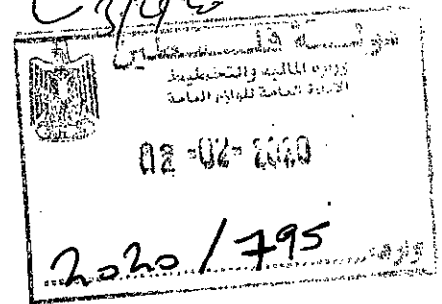 دولة فلسطين
وزارة المالية والتخطيط
الإدارة العامة للوازم العامة
02 -02- 2020
2020 / 795